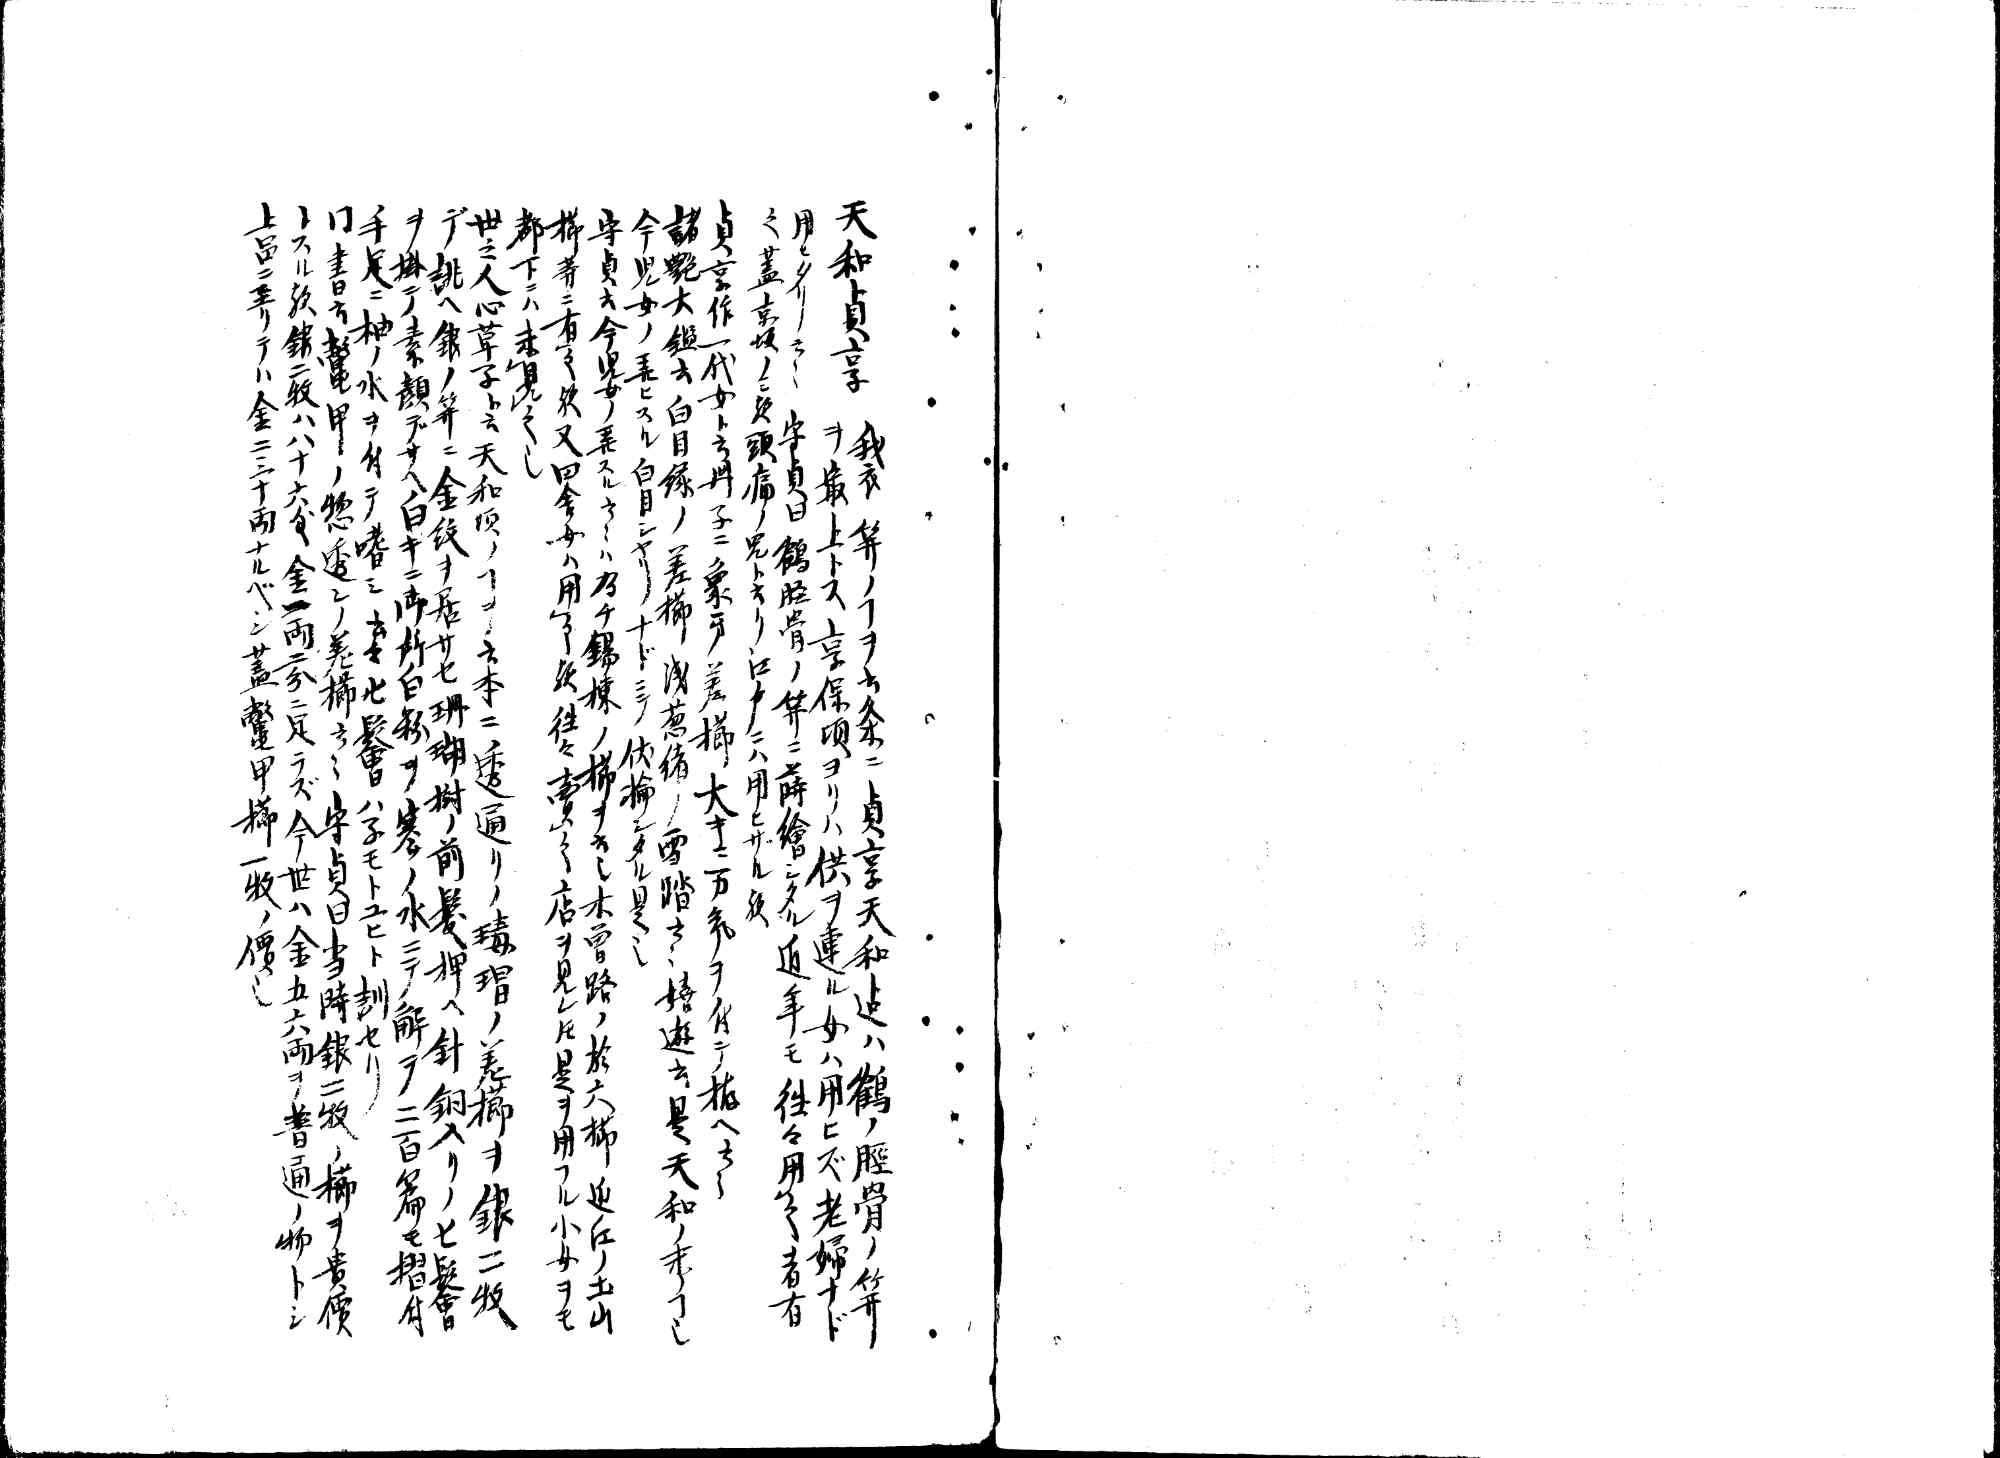 天和貞享　我衣笄ノコヲ云条ニ貞享天和迠ハ鶴ノ脛骨ノ笄
ヲ最上トス享保頃ヨリハ供ヲ連ル女ハ用ヒズ老婦ナド
用ヒタリ云々　守貞曰鶴脛骨ノ笄ニ蒔繪シタル近年モ往々用フル者有
之蓋京坂ノミ歟頭痛ノ呪ト云リ江戸ニハ用ヒザル歟
貞享作一代女ト云冊子ニ象牙ノ差櫛大キニ万気ヲ付テ拵ヘ云々
諸艶大鑑云白目緑ノ差櫛浅葱緒ノ雪踏云々嬉遊云是天和ノ末ノコ也
今児女ノ弄ヒスル白目シヤリナドミテ伏輪シタル是也
守貞云今児女ノ弄スル云々ハ乃チ錫棟ノ櫛ヲ云也木曽路ノ於六櫛近江ノ土山
櫛等ニ有之歟又田舎女ハ用フル歟往々賣之店ヲ見レ圧是ヲ用フル小女ヲモ
都下ニハ未見之也
世之人心草子ト云天和頃ノコヲ云本ニ透通リノ瑇瑁ノ差櫛ヲ銀二枚
デ誂ヘ銀ノ笄ニ金紋ヲ居サセ珊瑚樹ノ前髪押ヘ針銅入リノヒ髻
ヲ掛テ素顔デサヘ白キニ御所白粉ヲ寒ノ水ニテ解テ二百篇モ摺付
手足ニ柚ノ水ヲ付テ嗜ミ云々七髻ハ子モトユヒト訓セリ
同書曰云鼈甲ノ惣透シノ差櫛云々守貞曰当時銀二枚ノ櫛ヲ貴價
トスル歟銀二枚ハ八十六匁金一両二分ニ足ラズ今世ハ金五六両ヲ普通ノ物トシ
上品ニ至リテハ金二三十両ナルベシ蓋鼈甲櫛一枚ノ價也